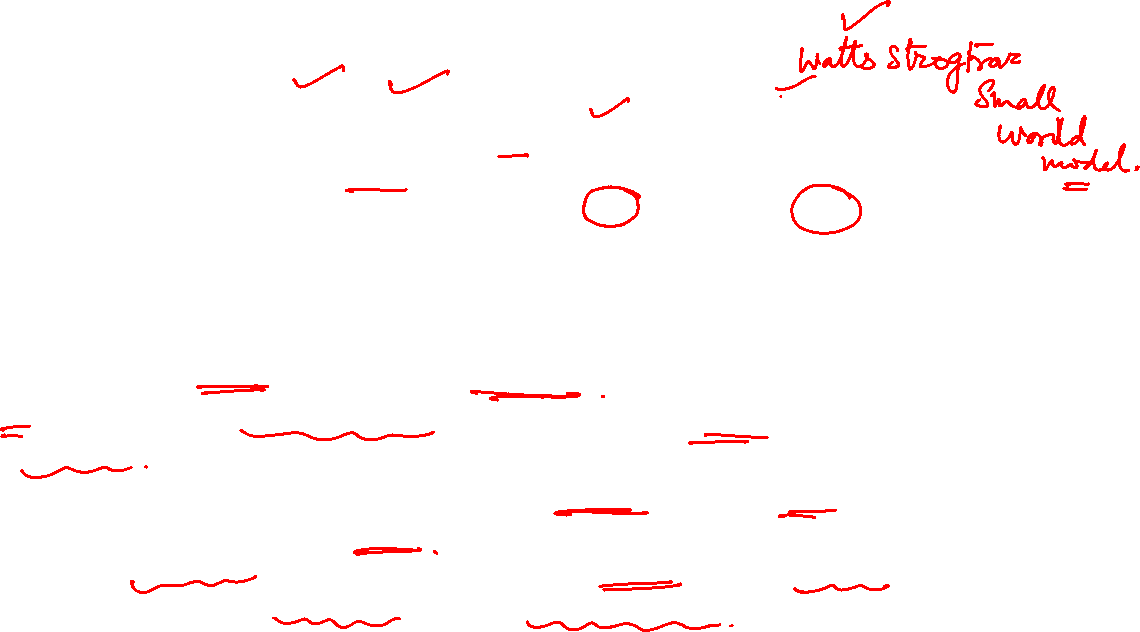 Watts Strogtraz
Small
World
model.